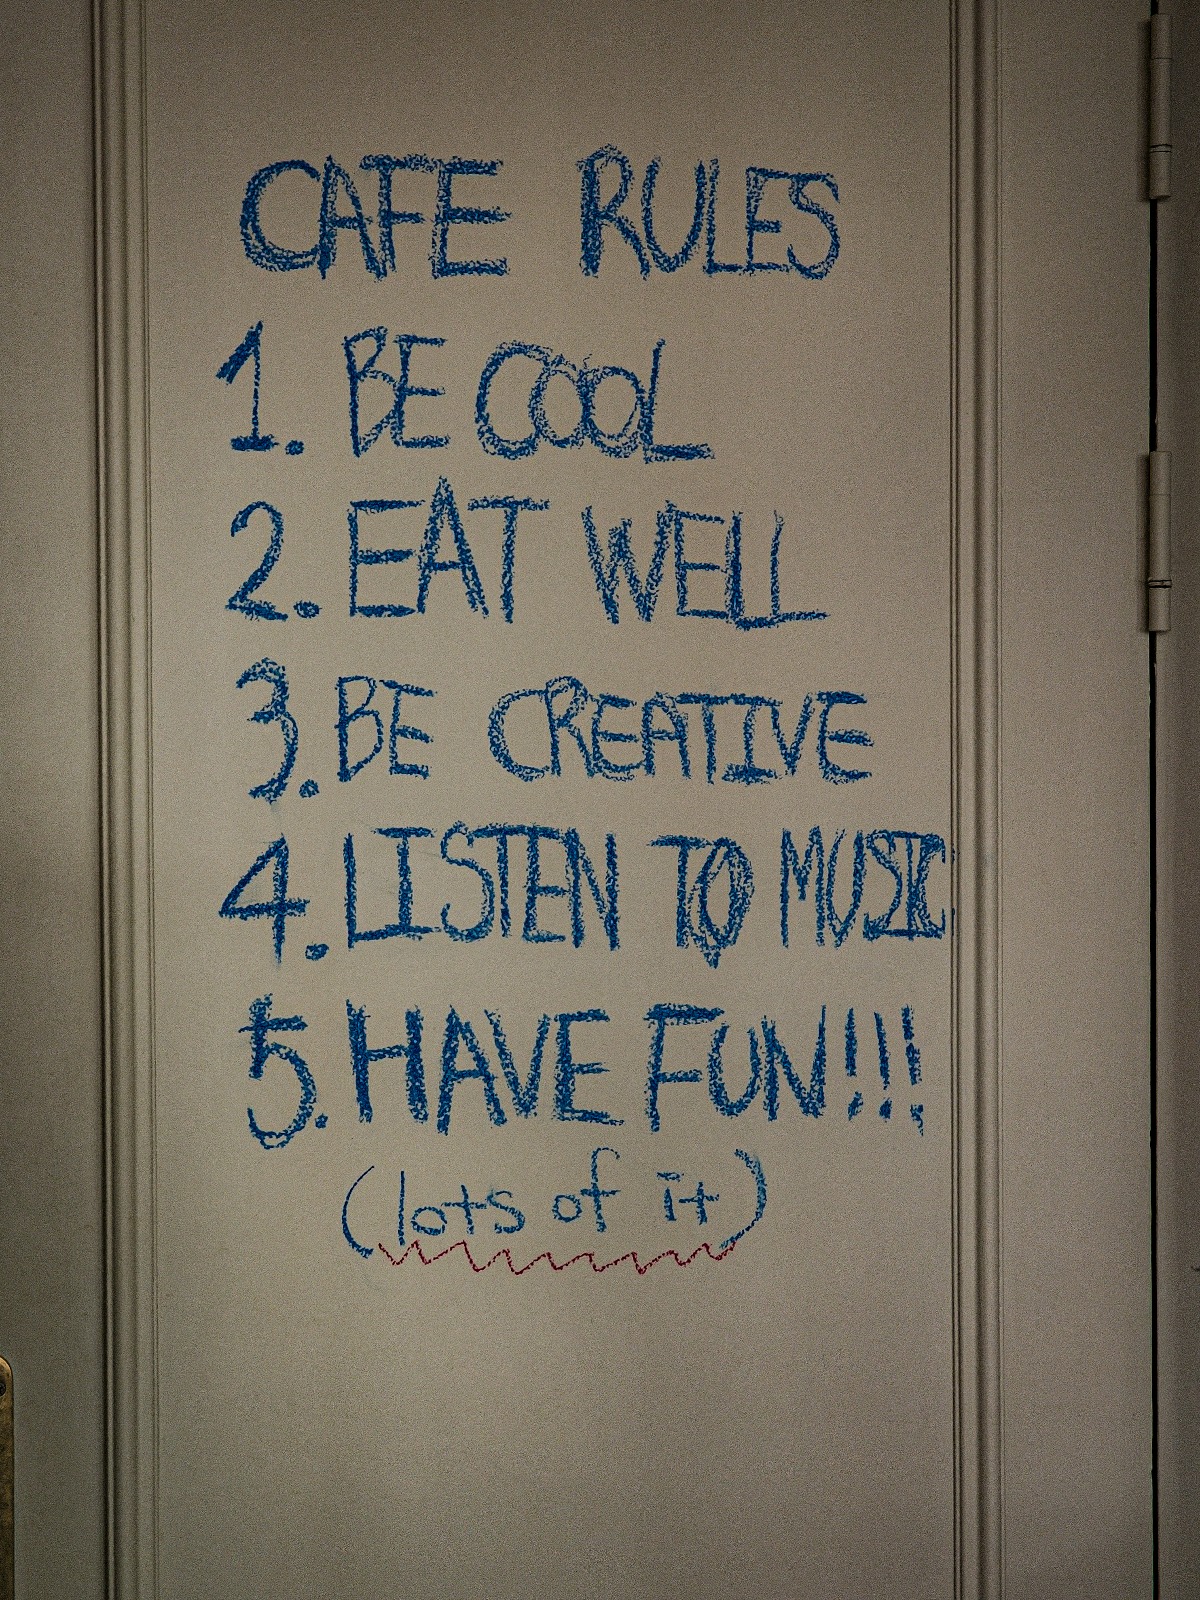 CAFE RULES
1. BE COOL
2. EAT WELL
3. BE CREATIVE
4. LISTEN TO MUSIC
5. HAVE FUN!!!
(lots of it)